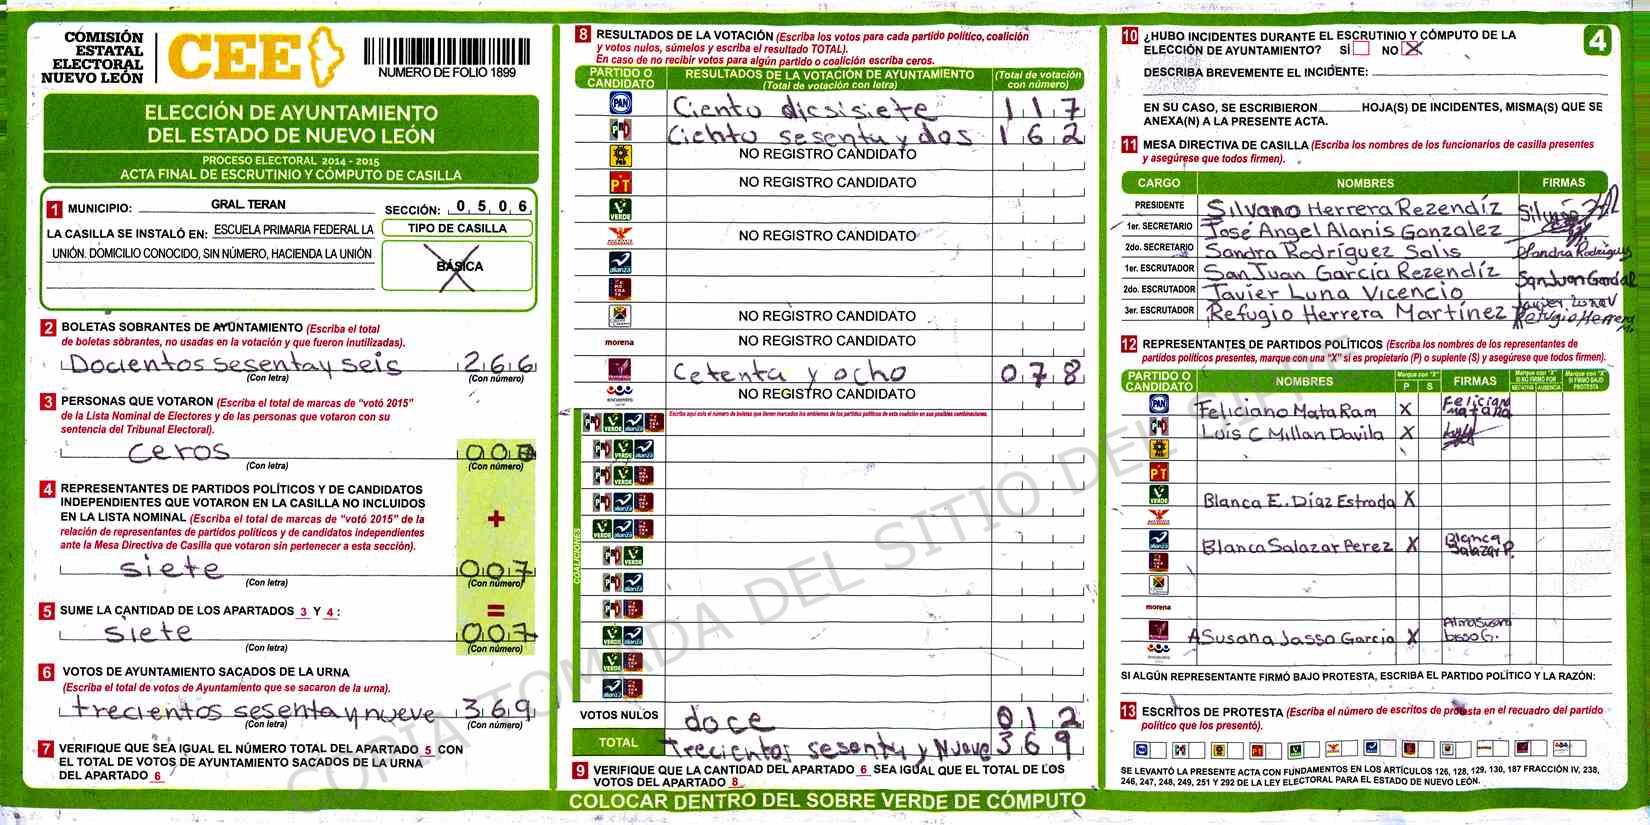 COMISIÓN
ESTATAL
ELECTORAL
NUEVO LEÓN
CEE
NUMERO DE FOLIO 1899
ELECCIÓN DE AYUNTAMIENTO
DEL ESTADO DE NUEVO LEÓN
PROCESO ELECTORAL 2014 - 2015
ACTA FINAL DE ESCRUTINIO Y CÓMPUTO DE CASILLA
1 MUNICIPIO: GRAL. TERAN SECCIÓN: 0 5 0 6
LA CASILLA SE INSTALÓ EN: ESCUELA PRIMARIA FEDERAL LA
UNIÓN. DOMICILIO CONOCIDO, SIN NÚMERO, HACIENDA LA UNIÓN
TIPO DE CASILLA
BÁSICA
2 BOLETAS SOBRANTES DE AYUNTAMIENTO (Escriba el total
de boletas sobrantes, no usadas en la votación y que fueron inutilizadas).
Docientos sesenta y seis 266
(Con letra) (Con número)
3 PERSONAS QUE VOTARON (Escriba el total de marcas de "votó 2015"
de la Lista Nominal de Electores y de las personas que votaron con su
sentencia del Tribunal Electoral).
ceros 000
(Con letra) (Con número)
4 REPRESENTANTES DE PARTIDOS POLÍTICOS Y DE CANDIDATOS
INDEPENDIENTES QUE VOTARON EN LA CASILLA NO INCLUIDOS
EN LA LISTA NOMINAL (Escriba el total de marcas de "votó 2015" de la
relación de representantes de partidos políticos y de candidatos independientes
ante la Mesa Directiva de Casilla que votaron sin pertenecer a esta sección).
+
siete 007
(Con letra) (Con número)
5 SUME LA CANTIDAD DE LOS APARTADOS 3 Y 4 : =
siete 007
(Con letra) (Con número)
6 VOTOS DE AYUNTAMIENTO SACADOS DE LA URNA
(Escriba el total de votos de Ayuntamiento que se sacaron de la urna).
trecientos sesenta y nueve 369
(Con letra) (Con número)
7 VERIFIQUE QUE SEA IGUAL EL NÚMERO TOTAL DEL APARTADO 5 CON
EL TOTAL DE VOTOS DE AYUNTAMIENTO SACADOS DE LA URNA
DEL APARTADO 6
8 RESULTADOS DE LA VOTACIÓN (Escriba los votos para cada partido político, coalición
y votos nulos, súmelos y escriba el resultado TOTAL).
En caso de no recibir votos para algún partido o coalición escriba ceros.
PARTIDO O CANDIDATO RESULTADOS DE LA VOTACIÓN DE AYUNTAMIENTO (Total de votación con letra) (Total de votación con número)
PAN Ciento diesisiete 117
PRI Ciento sesenta y dos 162
PRD NO REGISTRO CANDIDATO
PT NO REGISTRO CANDIDATO
VERDE
NO REGISTRO CANDIDATO
alianza
NO REGISTRO CANDIDATO
morena NO REGISTRO CANDIDATO
Cetenta y ocho 078
encuentro NO REGISTRO CANDIDATO
Escriba aquí solo el número de boletas que tienen marcados los emblemas de los partidos políticos de esta coalición en sus posibles combinaciones.
COALICIONES
VOTOS NULOS doce 012
TOTAL trecientos sesenta y Nueve 369
9 VERIFIQUE QUE LA CANTIDAD DEL APARTADO 6 SEA IGUAL QUE EL TOTAL DE LOS
VOTOS DEL APARTADO 8
COLOCAR DENTRO DEL SOBRE VERDE DE CÓMPUTO
10 ¿HUBO INCIDENTES DURANTE EL ESCRUTINIO Y CÓMPUTO DE LA
ELECCIÓN DE AYUNTAMIENTO? SÍ NO X
4
DESCRIBA BREVEMENTE EL INCIDENTE:
EN SU CASO, SE ESCRIBIERON HOJA(S) DE INCIDENTES, MISMA(S) QUE SE
ANEXA(N) A LA PRESENTE ACTA.
11 MESA DIRECTIVA DE CASILLA (Escriba los nombres de los funcionarios de casilla presentes
y asegúrese que todos firmen).
CARGO NOMBRES FIRMAS
PRESIDENTE Silvano Herrera Rezendíz
1er. SECRETARIO José Angel Alanis Gonzalez
2do. SECRETARIO Sandra Rodríguez Solis Sandra Rodríguez
1er. ESCRUTADOR San Juan García Rezendíz
2do. ESCRUTADOR Javier Luna Vicencio Javier Luna V
3er. ESCRUTADOR Refugio Herrera Martínez Refugio Herrera
12 REPRESENTANTES DE PARTIDOS POLÍTICOS (Escriba los nombres de los representantes de
partidos políticos presentes, marque con una "X" si es propietario (P) o suplente (S) y asegúrese que todos firmen).
PARTIDO O CANDIDATO NOMBRES Marque con "X" P S FIRMAS Marque con "X" SI NO FIRMÓ POR NEGATIVA AUSENCIA Marque con "X" SI FIRMÓ BAJO PROTESTA
PAN Feliciano Mata Ram X
PRI Luis C Millan Davila X
PRD
PT
VERDE Blanca E. Díaz Estrada X
alianza Blanca Salazar Perez X Blanca Salazar P.
morena
A Susana Jasso Garcia X
SI ALGÚN REPRESENTANTE FIRMÓ BAJO PROTESTA, ESCRIBA EL PARTIDO POLÍTICO Y LA RAZÓN:
13 ESCRITOS DE PROTESTA (Escriba el número de escritos de protesta en el recuadro del partido
político que los presentó).
SE LEVANTÓ LA PRESENTE ACTA CON FUNDAMENTOS EN LOS ARTÍCULOS 126, 128, 129, 130, 187 FRACCIÓN IV, 238,
246, 247, 248, 249, 251 Y 292 DE LA LEY ELECTORAL PARA EL ESTADO DE NUEVO LEÓN.
COPIA TOMADA DEL SITIO DEL SIPRE